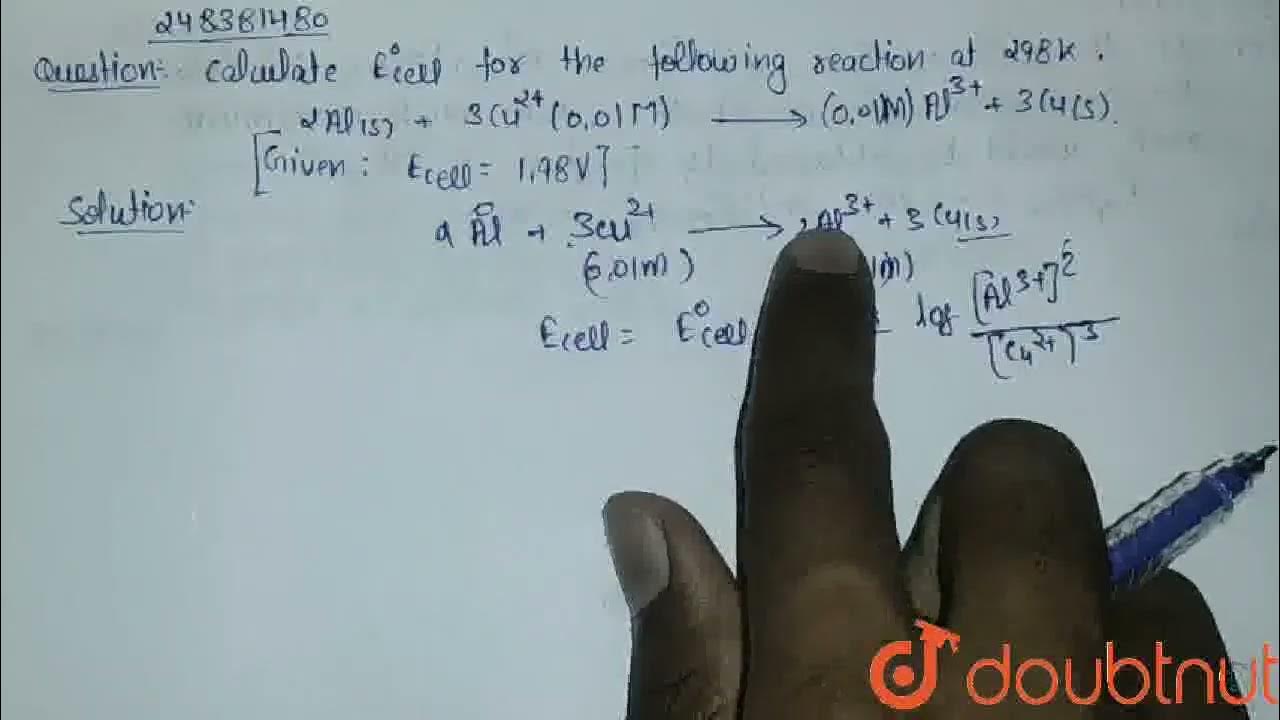 248381480
Question:- Calculate E°cell for the following reaction at 298K.
2Al(s) + 3Cu²⁺ (0.01M) ⟶ (0.01M) Al³⁺ + 3Cu(s).
[Given: Ecell = 1.98V]
Solution:-
Al + 3Cu²⁺ ⟶ Al³⁺ + 3Cu(s)
(0.01M)
Ecell = E°cell log [Al³⁺]² / [Cu²⁺]³
doubtnut